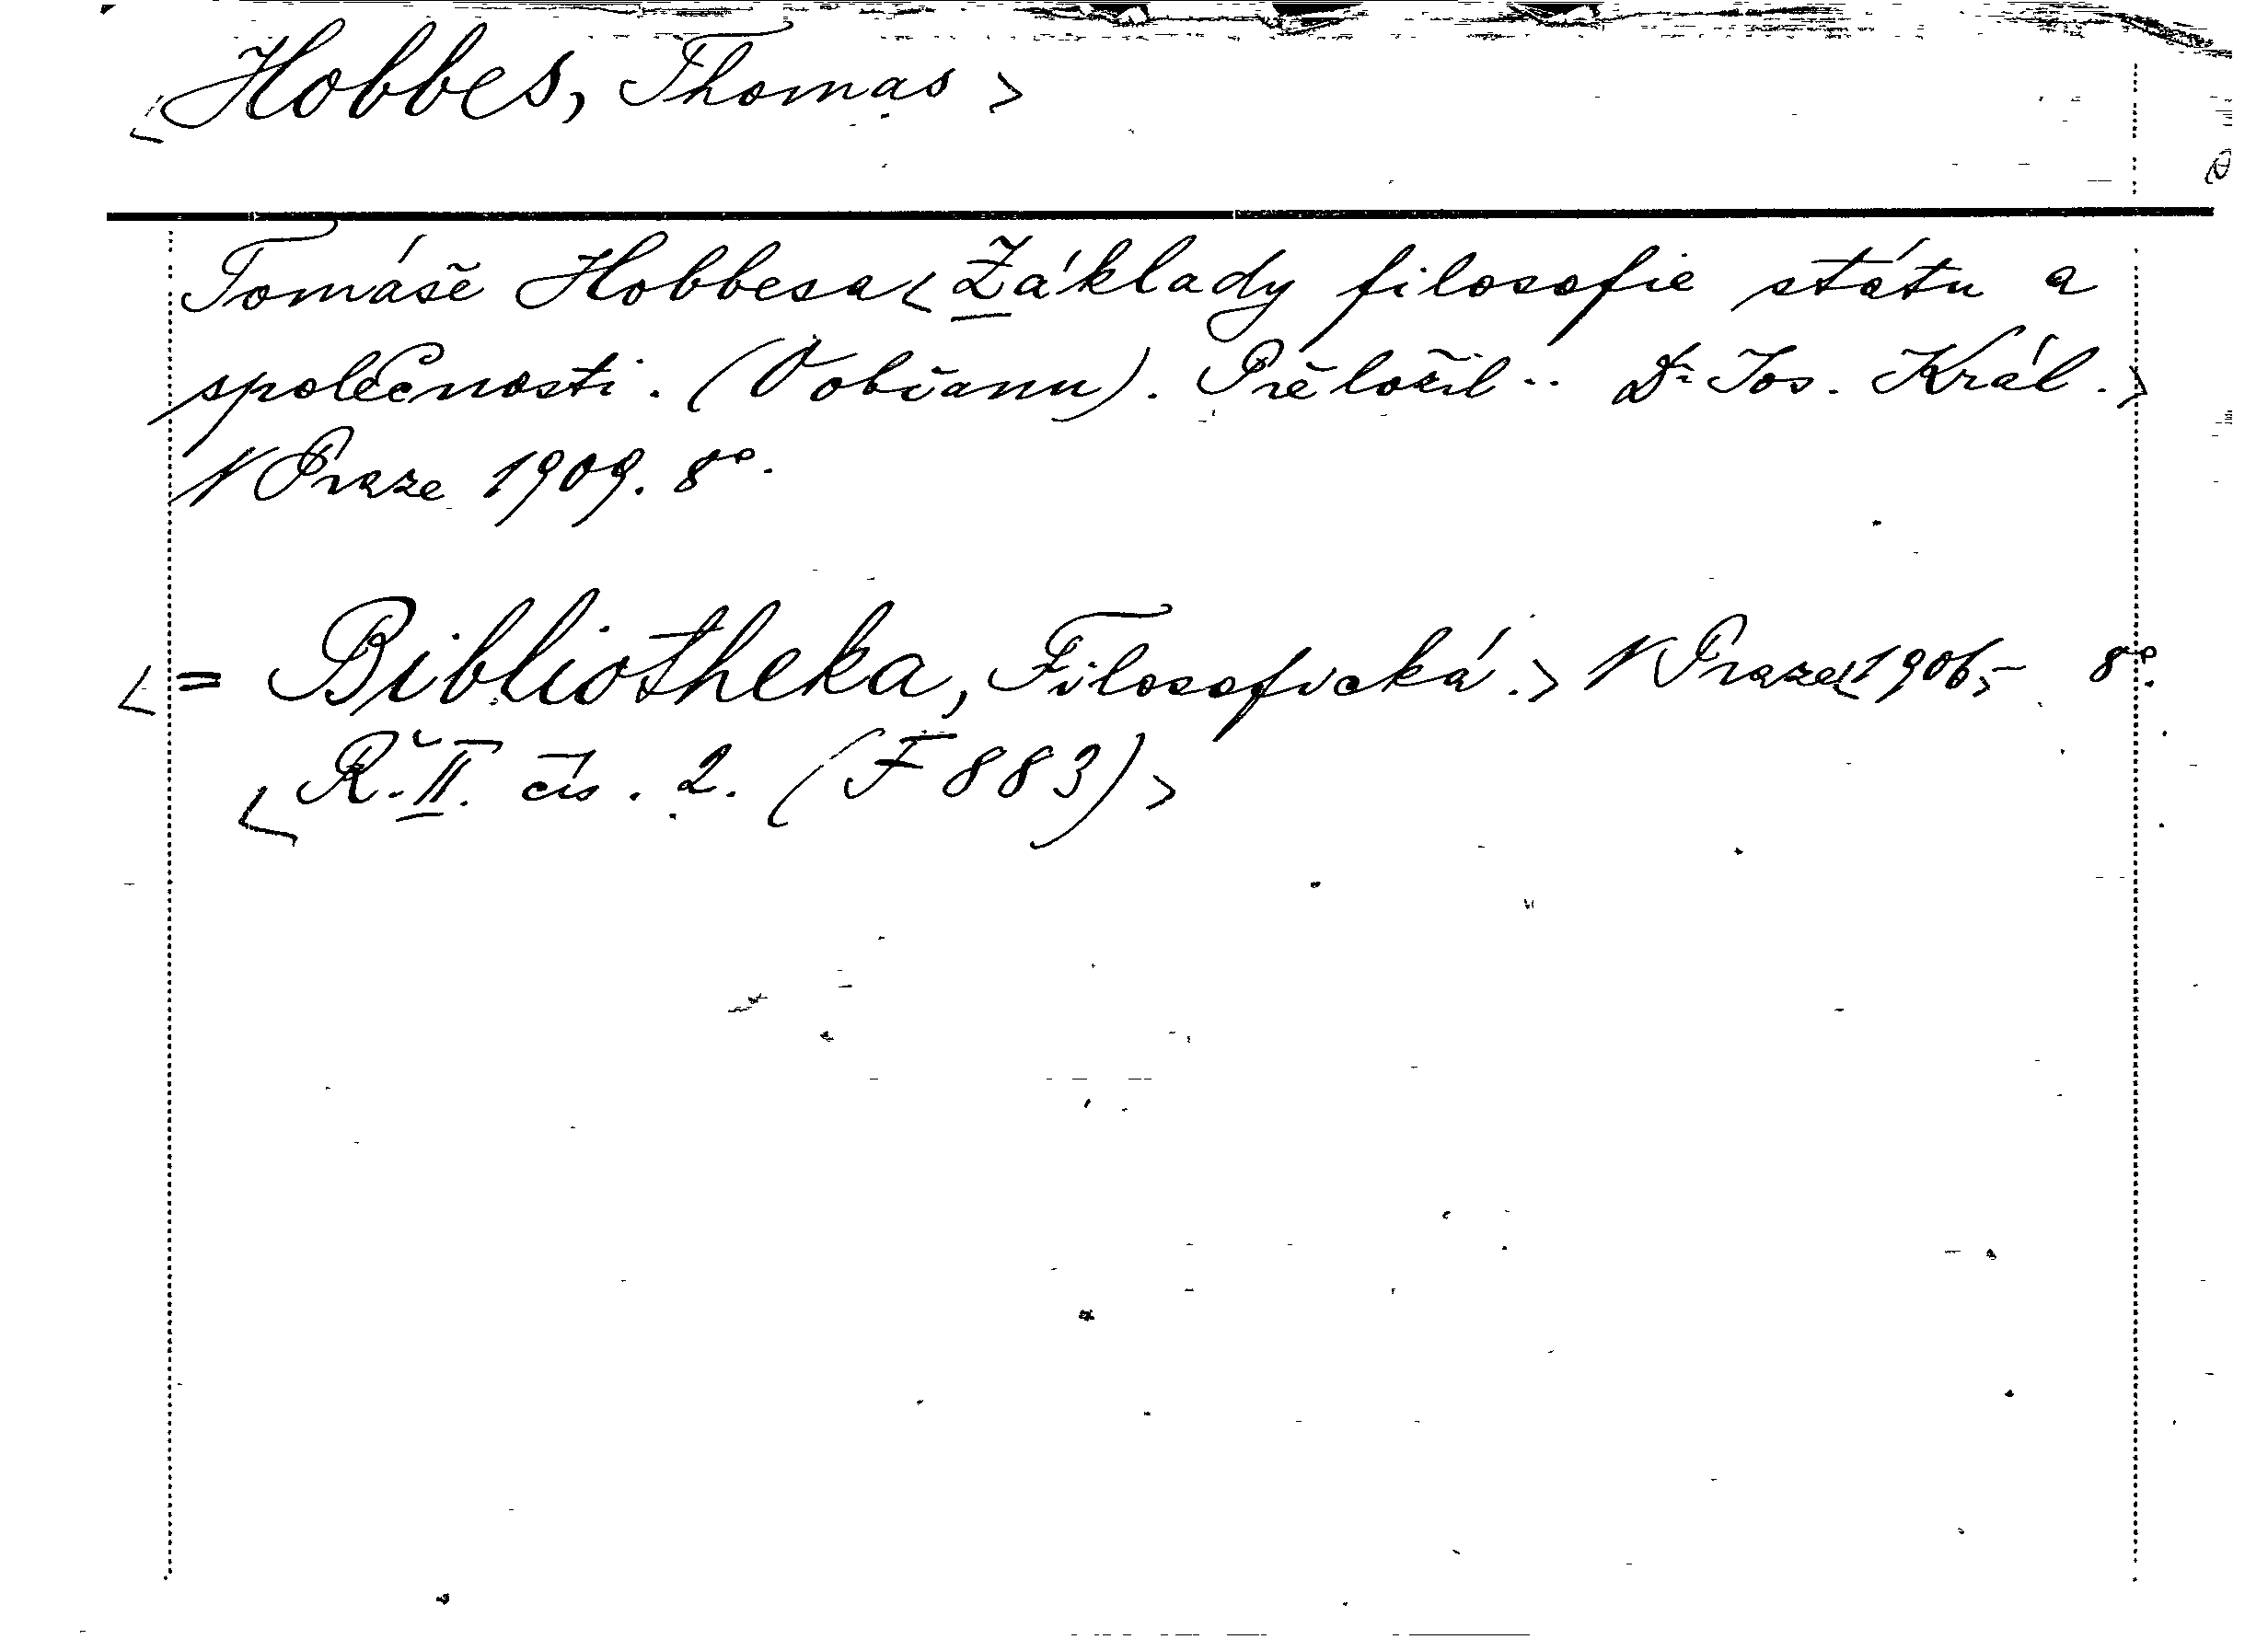 <Hobbes, Thomas>
Tomáše Hobbesa < Základy filosofie státu a
společnosti. (O občanu). Přeložil.. Dr Jos. Král.>
V Praze 1909. 8°.
<= Bibliotheka, Filosofická.> V Praze <1906,- 8°.
<Ř. II. čís. 2. (F 883)>